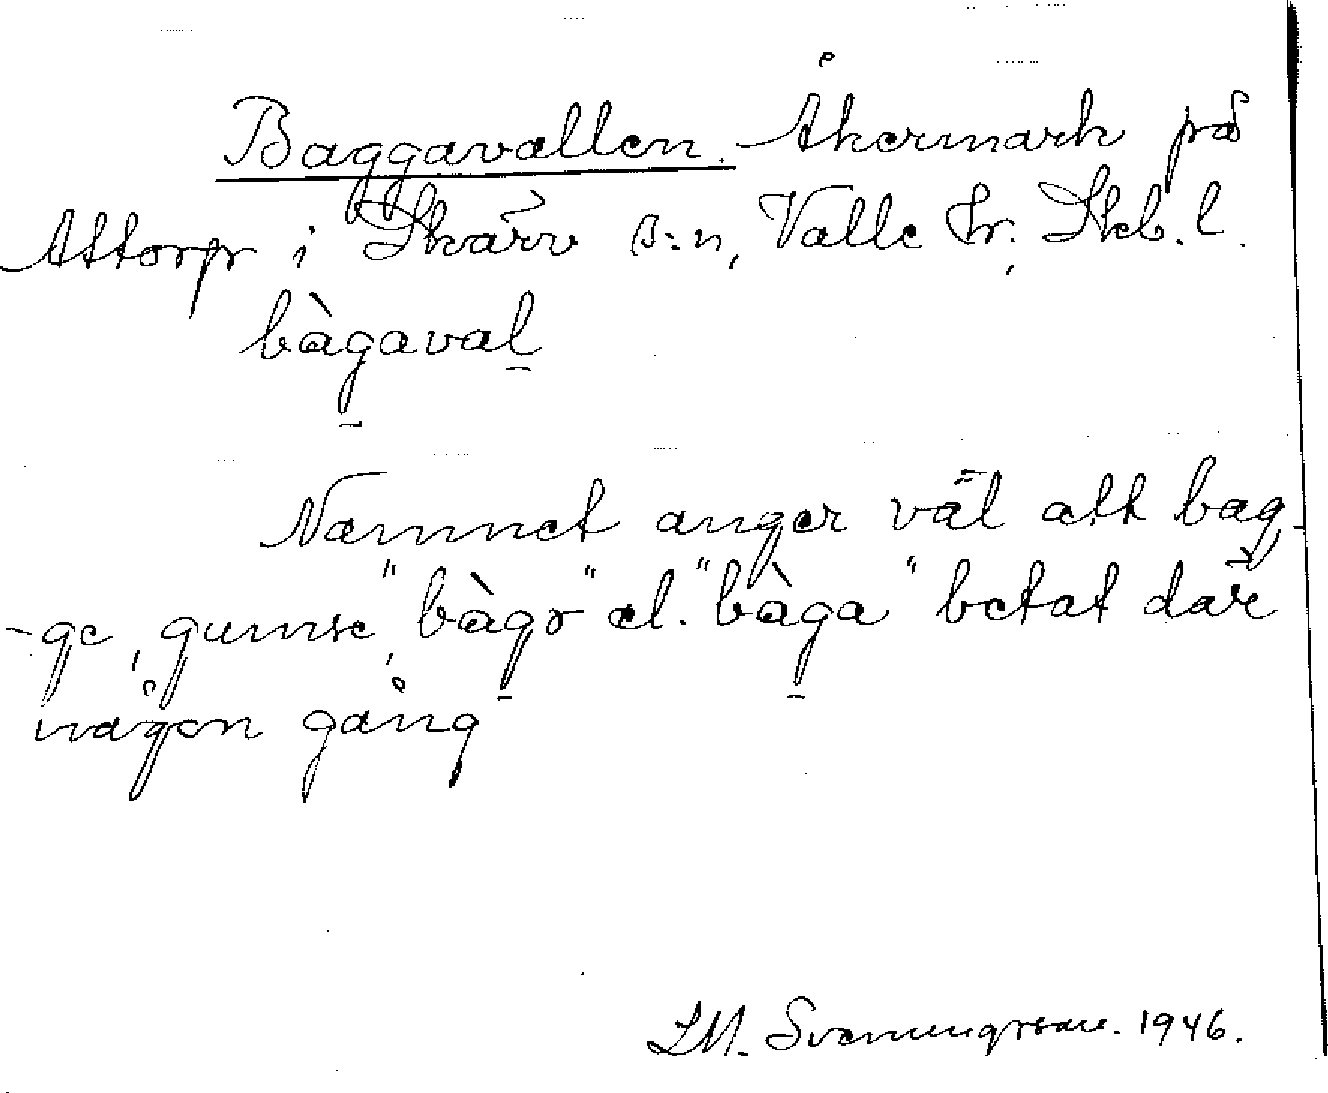 Baggavallen. Åkermark på
Attorp i Skärv s:n, Valle hr; Skb. l.
bàgaval
Namnet anger väl att bag-
-ge, gumse, "bàgɤ" el. "bàga" betat där
någon gång
L.M. Svenungsson. 1946.